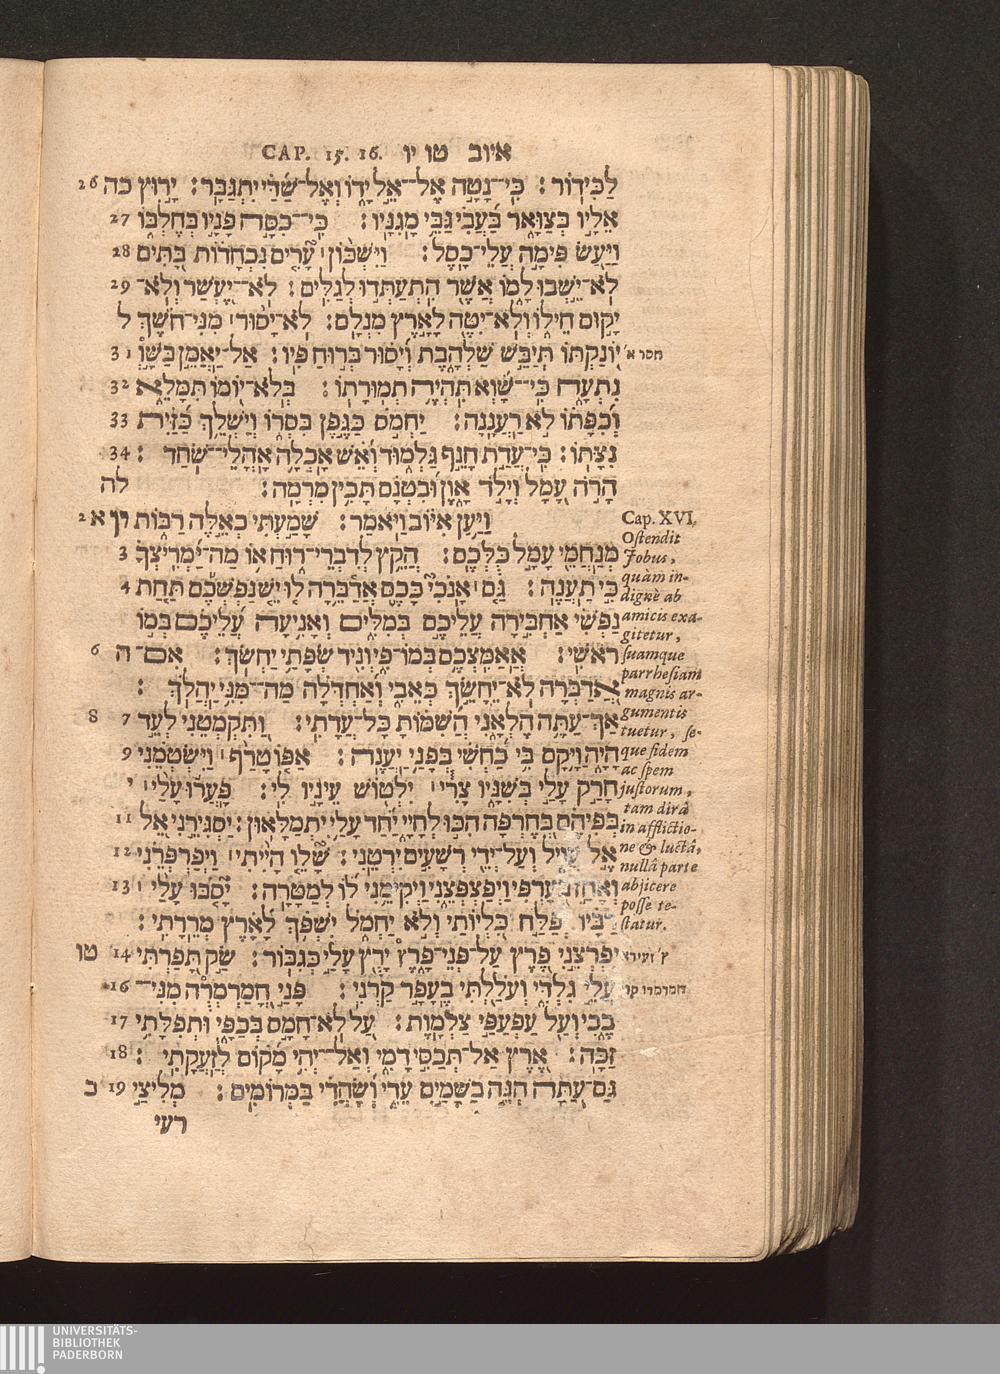 CAP. 15. 16. איוב טו יו
לַכִּידֽוֹר׃ כִּֽי־נָטָ֣ה אֶל־אֵ֣ל יָד֑וֹ וְאֶל־שַׁ֝דַּ֗י יִתְגַּבָּֽר׃ יָר֣וּץ כה 26
אֵלָ֣יו בְּצַוָּ֑אר בַּ֝עֲבִ֗י גַּבֵּ֥י מָֽגִנָּֽיו׃ כִּֽי־כִסָּ֣ה פָנָ֣יו בְּחֶלְבּ֑וֹ 27
וַיַּ֖עַשׂ פִּימָ֣ה עֲלֵי־כָֽסֶל׃ וַיִּשְׁכּ֤וֹן עָ֘רִ֤ים נִכְחָד֗וֹת בָּ֭תִּים 28
לֹא־יֵ֣שְׁבוּ לָ֑מוֹ אֲשֶׁ֖ר הִתְעַתְּד֣וּ לְגַלִּֽים׃ לֹֽא־יֶ֭עְשַׁר וְלֹא־ 29
יָק֣וּם חֵיל֑וֹ וְלֹֽא־יִטֶּ֖ה לָאָ֣רֶץ מִנְלָֽם׃ לֹֽא־יָס֨וּר מִנִּי־חֹ֗שֶׁךְ ל
יֹֽ֭נַקְתּוֹ תְּיַבֵּ֣שׁ שַׁלְהָ֑בֶת וְ֝יָס֗וּר בְּר֣וּחַ פִּֽיו׃ אַל־יַאֲמֵ֣ן בַּשָּׁ֣ו 31 חסר א׳
נִתְעָ֑ה כִּי־שָׁ֝֗וְא תִּהְיֶ֥ה תְמוּרָתֽוֹ׃ בְּֽלֹא־י֭וֹמוֹ תִּמָּלֵ֑א 32
וְ֝כִפָּת֗וֹ לֹ֣א רַֽעֲנָֽנָה׃ יַחְמֹ֣ס כַּגֶּ֣פֶן בִּסְר֑וֹ וְיַשְׁלֵ֥ךְ כַּ֝זַּ֗יִת 33
נִצָּתֽוֹ׃ כִּֽי־עֲדַ֣ת חָנֵ֣ף גַּלְמ֑וּד וְ֝אֵ֗שׁ אָכְלָ֥ה אָֽהֳלֵי־שֹֽׁחַד׃ 34
הָרֹ֣ה עָ֭מָל וְיָ֣לֹד אָ֑וֶן וּ֝בִטְנָ֗ם תָּכִ֥ין מִרְמָֽה׃ לה
Cap. XVI.
וַיַּ֥עַן אִיּ֗וֹב וַיֹּאמַֽר׃ שָׁמַ֣עְתִּי כְאֵ֣לֶּה רַבּ֑וֹת יו א 2
מְנַחֲמֵ֖י עָמָ֣ל כֻּלְּכֶֽם׃ הֲקֵ֥ץ לְדִבְרֵי־ר֑וּחַ א֥וֹ מַה־יַּ֝מְרִֽיצְךָ֗ 3
כִּ֣י תַעֲנֶֽה׃ גַּ֤ם אָנֹכִי֮ כָּכֶ֢ם אֲדַ֫בֵּ֥רָה ל֤וּ יֵ֪שׁ נַפְשְׁכֶ֡ם תַּ֤חַת 4
נַפְשִׁ֗י אַחְבִּ֣ירָה עֲלֵיכֶ֣ם בְּמִלִּ֑ים וְאָנִ֥יעָה עֲ֝לֵיכֶ֗ם בְּמ֣וֹ
רֹאשִֽׁי׃ אֲאַמִּצְכֶ֥ם בְּמוֹ־פִ֑י וְנִ֖יד שְׂפָתַ֣י יַחְשֹֽׂךְ׃ אִֽם־ ה 6
אֲ֭דַבְּרָה לֹא־יֵחָשֵׂ֣ךְ כְּאֵבִ֑י וְ֝אַחְדְּלָ֗ה מַה־מִּנִּ֥י יַהֲלֹֽךְ׃
אַךְ־עַתָּ֥ה הֶלְאָ֑נִי הֲ֝שִׁמּ֗וֹתָ כָּל־עֲדָתִֽי׃ וַֽ֭תִּקְמְטֵנִי לְעֵ֣ד 7 8
הָיָ֑ה וַיָּ֥קָם בִּ֥י כַ֝חֲשִׁ֗י בְּפָנַ֥י יַעֲנֶֽה׃ אַפּ֤וֹ טָרַ֨ף וַֽיִּשְׂטְמֵ֗נִי 9
חָרַ֣ק עָלַ֣י בְּשִׁנָּ֑יו צָרִ֓י יִלְט֖וֹשׁ עֵינָ֣יו לִֽי׃ פָּעֲר֬וּ עָלַ֨י י
בְּפִיהֶ֗ם בְּ֭חֶרְפָּה הִכּ֣וּ לְחָיָ֑י יַ֝֗חַד עָלַ֥י יִתְמַלָּאֽוּן׃ יַסְגִּירֵ֣נִי אֵ֭ל 11
אֶ֣ל עֲוִ֑יל וְעַל־יְדֵ֖י רְשָׁעִ֣ים יִרְטֵֽנִי׃ שָׁ֘לֵ֤ו הָיִ֨יתִי וַֽיְפַרְפְּרֵ֗נִי 12
וְאָחַ֣ז בְּ֭עָרְפִּי וַֽיְפַצְפְּצֵ֑נִי וַיְקִימֵ֥נִי ל֝֗וֹ לְמַטָּרָֽה׃ יָ֘סֹ֤בּוּ עָלַ֨י 13
רַבָּ֗יו יְפַלַּ֣ח כִּ֭לְיוֹתַי וְלֹ֣א יַחְמ֑ל יִשְׁפֹּ֥ךְ לָ֝אָ֗רֶץ מְרֵרָתִֽי׃
יִפְרְצֵ֣נִי פֶ֭רֶץ עַל־פְּנֵי־פָ֑רֶץ יָרֻ֖ץ עָלַ֣י כְּגִבּֽוֹר׃ שַׂ֣ק תָּ֭פַרְתִּי 14 טו ץ׳ זעירא
עֲלֵ֣י גִלְדִּ֑י וְעֹלַ֖לְתִּי בֶעָפָ֣ר קַרְנִֽי׃ פָּנַ֣י חֳ֭מַרְמְרֻה מִנִּי־ 16 חמרמרו קרי
בֶ֑כִי וְעַ֖ל עַפְעַפַּ֣י צַלְמָֽוֶת׃ עַ֭ל לֹא־חָמָ֣ס בְּכַפָּ֑י וּֽתְפִלָּתִ֥י 17
זַכָּֽה׃ אֶ֭רֶץ אַל־תְּכַסִּ֣י דָמִ֑י וְֽאַל־יְהִ֥י מָ֝ק֗וֹם לְזַעֲקָתִֽי׃ 18
גַּם־עַ֭תָּה הִנֵּה־בַשָּׁמַ֣יִם עֵדִ֑י וְ֝שָׂהֲדִ֗י בַּמְּרוֹמִֽים׃ מְלִיצַ֥י 19 כ
רעי
Ostendit
Jobus,
quam in-
dignè ab
amicis exa-
gitetur,
suamque
parrhesiam
magnis ar-
gumentis
tuetur, se-
que fidem
ac spem
justorum,
tam dirâ
in afflictio-
ne & luctâ,
nullâ parte
abjicere
posse te-
statur.
UNIVERSITÄTS-
BIBLIOTHEK
PADERBORN